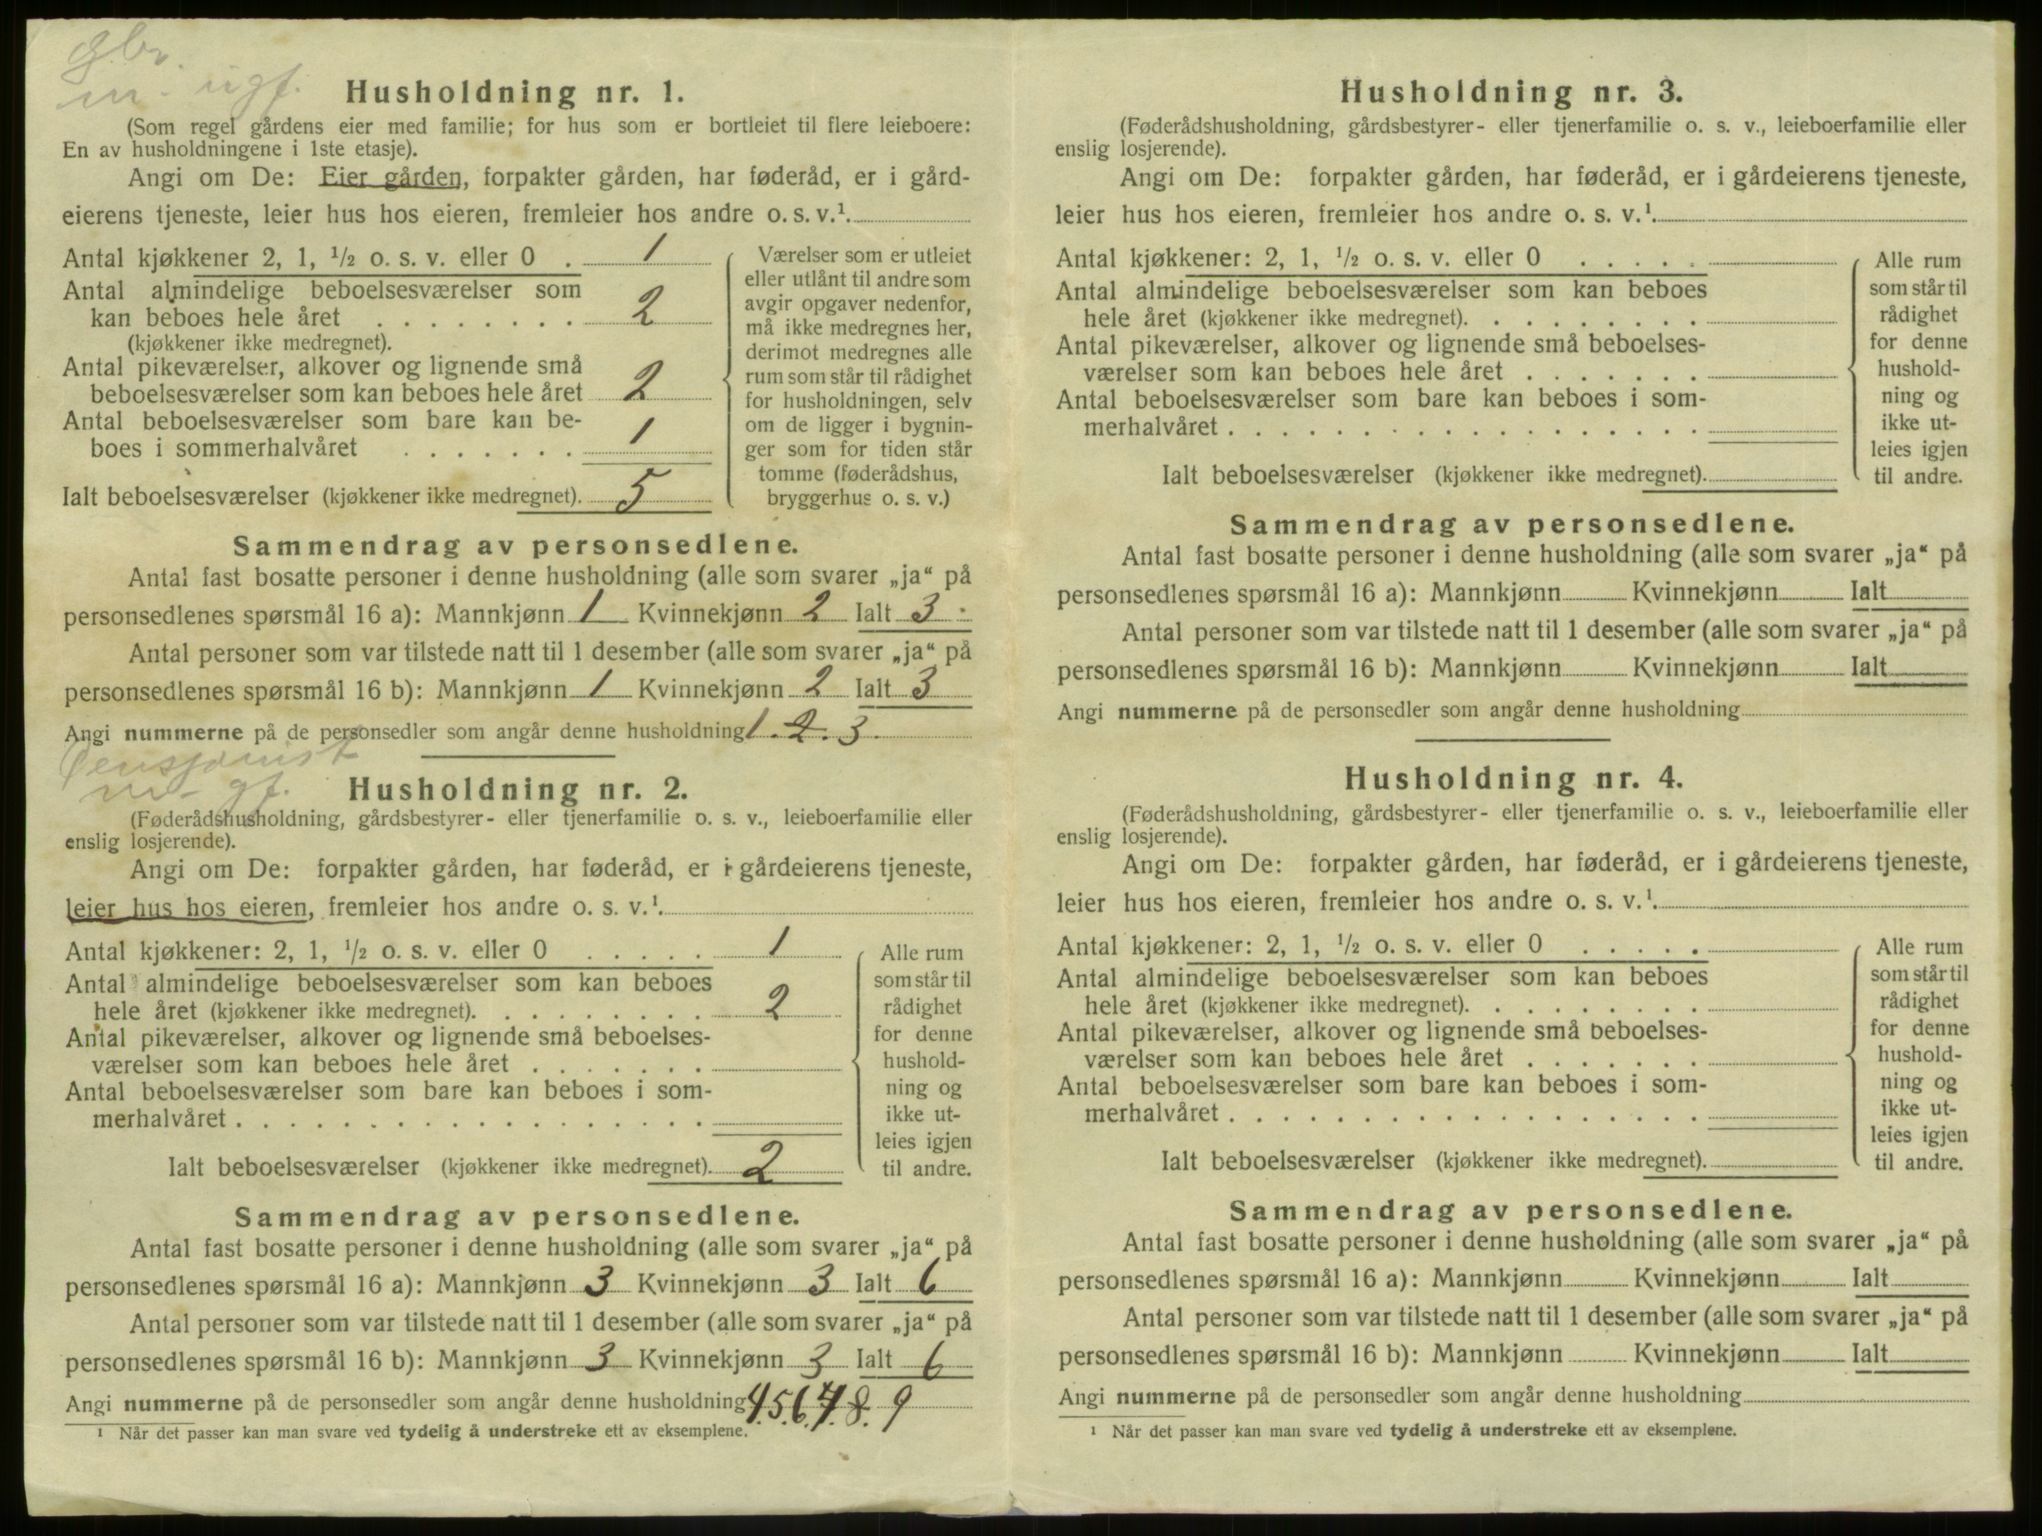 gbr.
m. ugf.
Husholdning nr. 1.
(Som regel gårdens eier med familie; for hus som er bortleiet til flere leieboere:
En av husholdningene i 1ste etasje).
Angi om De: Eier gården, forpakter gården, har føderåd, er i gård-
eierens tjeneste, leier hus hos eieren, fremleier hos andre o. s. v.¹
Antal kjøkkener 2, 1, ½ o. s. v. eller 0 . 1
Antal almindelige beboelsesværelser som
kan beboes hele året . . . . . . . . 2
(kjøkkener ikke medregnet).
Antal pikeværelser, alkover og lignende små
beboelsesværelser som kan beboes hele året 2
Antal beboelsesværelser som bare kan be-
boes i sommerhalvåret . . . . . . . 1
Ialt beboelsesværelser (kjøkkener ikke medregnet). 5
Værelser som er utleiet
eller utlånt til andre som
avgir opgaver nedenfor,
må ikke medregnes her,
derimot medregnes alle
rum som står til rådighet
for husholdningen, selv
om de ligger i bygnin-
ger som for tiden står
tomme (føderådshus,
bryggerhus o. s. v.)
Sammendrag av personsedlene.
Antal fast bosatte personer i denne husholdning (alle som svarer „ja“ på
personsedlenes spørsmål 16 a): Mannkjønn 1 Kvinnekjønn 2 Ialt 3
Antal personer som var tilstede natt til 1 desember (alle som svarer „ja“ på
personsedlenes spørsmål 16 b): Mannkjønn 1 Kvinnekjønn 2 Ialt 3
Angi nummerne på de personsedler som angår denne husholdning 1. 2. 3.
Pensjonist
m. gf.
Husholdning nr. 2.
(Føderådshusholdning, gårdsbestyrer- eller tjenerfamilie o. s. v., leieboerfamilie eller
enslig losjerende).
Angi om De: forpakter gården, har føderåd, er i gårdeierens tjeneste,
leier hus hos eieren, fremleier hos andre o. s. v.¹
Antal kjøkkener: 2, 1, ½ o. s. v. eller 0 . . . . . 1
Antal almindelige beboelsesværelser som kan beboes
hele året (kjøkkener ikke medregnet). . . . . . . . . 2
Antal pikeværelser, alkover og lignende små beboelses-
værelser som kan beboes hele året . . . . . . .
Antal beboelsesværelser som bare kan beboes i som-
merhalvåret . . . . . . . . . . . . . . . . . .
Ialt beboelsesværelser (kjøkkener ikke medregnet). 2
Alle rum
som står til
rådighet
for denne
hushold-
ning og
ikke ut-
leies igjen
til andre.
Sammendrag av personsedlene.
Antal fast bosatte personer i denne husholdning (alle som svarer „ja“ på
personsedlenes spørsmål 16 a): Mannkjønn 3 Kvinnekjønn 3 Ialt 6
Antal personer som var tilstede natt til 1 desember (alle som svarer „ja“ på
personsedlenes spørsmål 16 b): Mannkjønn 3 Kvinnekjønn 3 Ialt 6
Angi nummerne på de personsedler som angår denne husholdning 4. 5. 6. 7. 8. 9
¹ Når det passer kan man svare ved tydelig å understreke ett av eksemplene.
Husholdning nr. 3.
(Føderådshusholdning, gårdsbestyrer- eller tjenerfamilie o. s. v., leieboerfamilie eller
enslig losjerende).
Angi om De: forpakter gården, har føderåd, er i gårdeierens tjeneste,
leier hus hos eieren, fremleier hos andre o. s. v.¹
Antal kjøkkener: 2, 1, ½ o. s. v. eller 0 . . . . .
Antal almindelige beboelsesværelser som kan beboes
hele året (kjøkkener ikke medregnet). . . . . . . . .
Antal pikeværelser, alkover og lignende små beboelses-
værelser som kan beboes hele året . . . . . . .
Antal beboelsesværelser som bare kan beboes i som-
merhalvåret . . . . . . . . . . . . . . . . . .
Ialt beboelsesværelser (kjøkkener ikke medregnet).
Alle rum
som står til
rådighet
for denne
hushold-
ning og
ikke ut-
leies igjen
til andre.
Sammendrag av personsedlene.
Antal fast bosatte personer i denne husholdning (alle som svarer „ja“ på
personsedlenes spørsmål 16 a): Mannkjønn Kvinnekjønn Ialt
Antal personer som var tilstede natt til 1 desember (alle som svarer „ja“ på
personsedlenes spørsmål 16 b): Mannkjønn Kvinnekjønn Ialt
Angi nummerne på de personsedler som angår denne husholdning
Husholdning nr. 4.
(Føderådshusholdning, gårdsbestyrer- eller tjenerfamilie o. s. v., leieboerfamilie eller
enslig losjerende).
Angi om De: forpakter gården, har føderåd, er i gårdeierens tjeneste,
leier hus hos eieren, fremleier hos andre o. s. v.¹
Antal kjøkkener: 2, 1, ½ o. s. v. eller 0 . . . . .
Antal almindelige beboelsesværelser som kan beboes
hele året (kjøkkener ikke medregnet). . . . . . . . .
Antal pikeværelser, alkover og lignende små beboelses-
værelser som kan beboes hele året . . . . . . .
Antal beboelsesværelser som bare kan beboes i som-
merhalvåret . . . . . . . . . . . . . . . . . .
Ialt beboelsesværelser (kjøkkener ikke medregnet).
Alle rum
som står til
rådighet
for denne
hushold-
ning og
ikke ut-
leies igjen
til andre.
Sammendrag av personsedlene.
Antal fast bosatte personer i denne husholdning (alle som svarer „ja“ på
personsedlenes spørsmål 16 a): Mannkjønn Kvinnekjønn Ialt
Antal personer som var tilstede natt til 1 desember (alle som svarer „ja“ på
personsedlenes spørsmål 16 b): Mannkjønn Kvinnekjønn Ialt
Angi nummerne på de personsedler som angår denne husholdning
¹ Når det passer kan man svare ved tydelig å understreke ett av eksemplene.